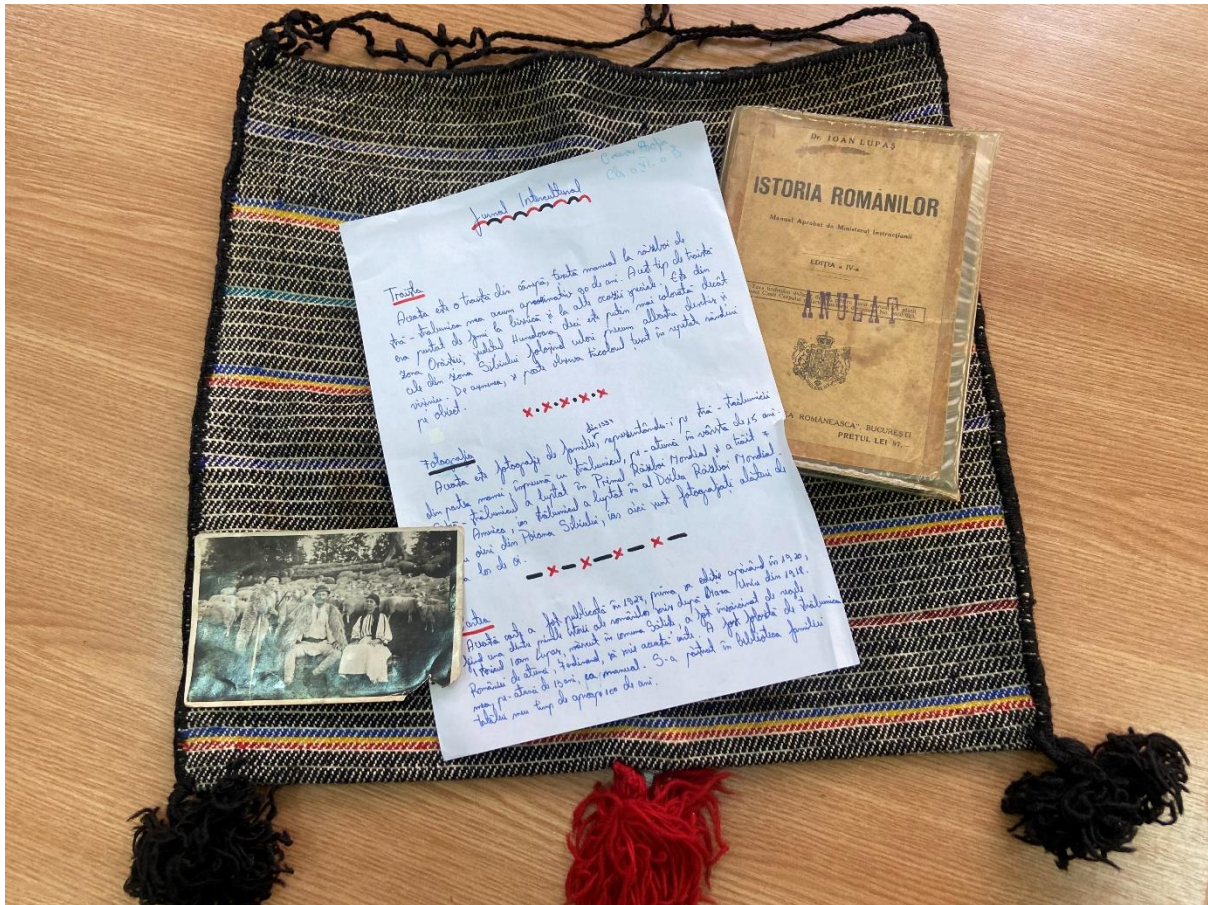 Jurnal Intercultural
Traista
Aceasta este o traistă din cânepă, țesută manual la război de
stră-străbunica mea acum aproximativ 90 de ani. Acest tip de traistă
era purtat de femei la biserică și la alte ocazii speciale. Este din
zona Orăștiei, județul Hunedoara, deci este puțin mai colorată decât
cele din zona Sibiului folosind culori precum albastru deschis și
vișiniu. De asemenea, se poate observa tricolorul țesut în repetate rânduri
pe obiect.
Fotografia
Aceasta este fotografie de familie, din 1939 reprezentându-i pe stră-străbunicii
din partea mamei împreună cu străbunicul, pe-atunci în vârstă de 15 ani.
străbunicul a luptat în Primul Război Mondial și a trăit
America, iar străbunicul a luptat în al Doilea Război Mondial.
oieri din Poiana Sibiului, iar aici sunt fotografiați alături de
de oi.
Cartea
Această carte a fost publicată în prima sa ediție apărând în 1920,
fiind una dintre primele istorii ale românilor scrise după Marea Unire din 1918.
Istoricul Ioan Lupaș, născut în comuna Săliște, a fost însărcinat de regele
României de atunci, Ferdinand, să scrie această carte. A fost folosită de străbunica
mea, pe-atunci de 13 ani, ca manual. S-a păstrat în biblioteca familiei
tatălui meu timp de aproape 100 de ani.
Dr. IOAN LUPAȘ
ISTORIA ROMÂNILOR
Manual Aprobat de Ministerul Instrucțiunii
EDIȚIA a IV-a
ANULAT
ROMÂNEASCĂ", BUCUREȘTI
PREȚUL LEI 87,—